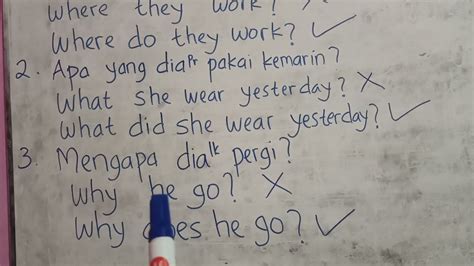 where they work?
Where do they work? ✓
2. Apa yang dia Pr pakai kemarin?
What she wear yesterday? X
What did she wear yesterday? ✓
3. Mengapa dia lk pergi?
Why he go? X
Why does he go? ✓